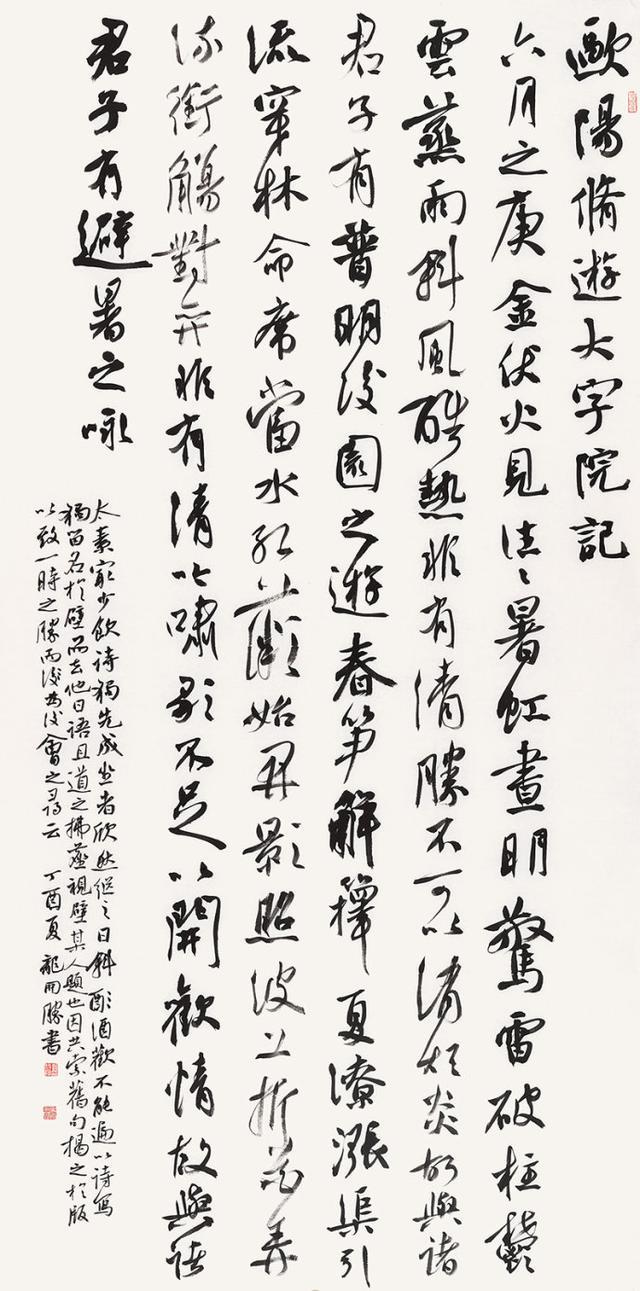 歐陽脩遊大字院記
六月之庚金伏火見往々暑虹晝明驚雷破柱鬱
雲蒸雨斜風酷熱非有清勝不可以消煩炎故與諸
君子有普明後園之遊春笋解籜夏潦漲渠引
流穿林命席當水紅薇始開影照波上折花弄
流銜觴對弈非有清吟嘯歌不足以開歡情故與諸
君子有避暑之咏
太素最少飲詩獨先成坐者欣然繼之日斜酌酒歡不能遍以詩寫
獨留名於壁而去他日語且道之拂塵視壁某人題也因共索舊句揭之於版
以致一時之勝而後為後會之尋云 丁酉夏 龍開勝書